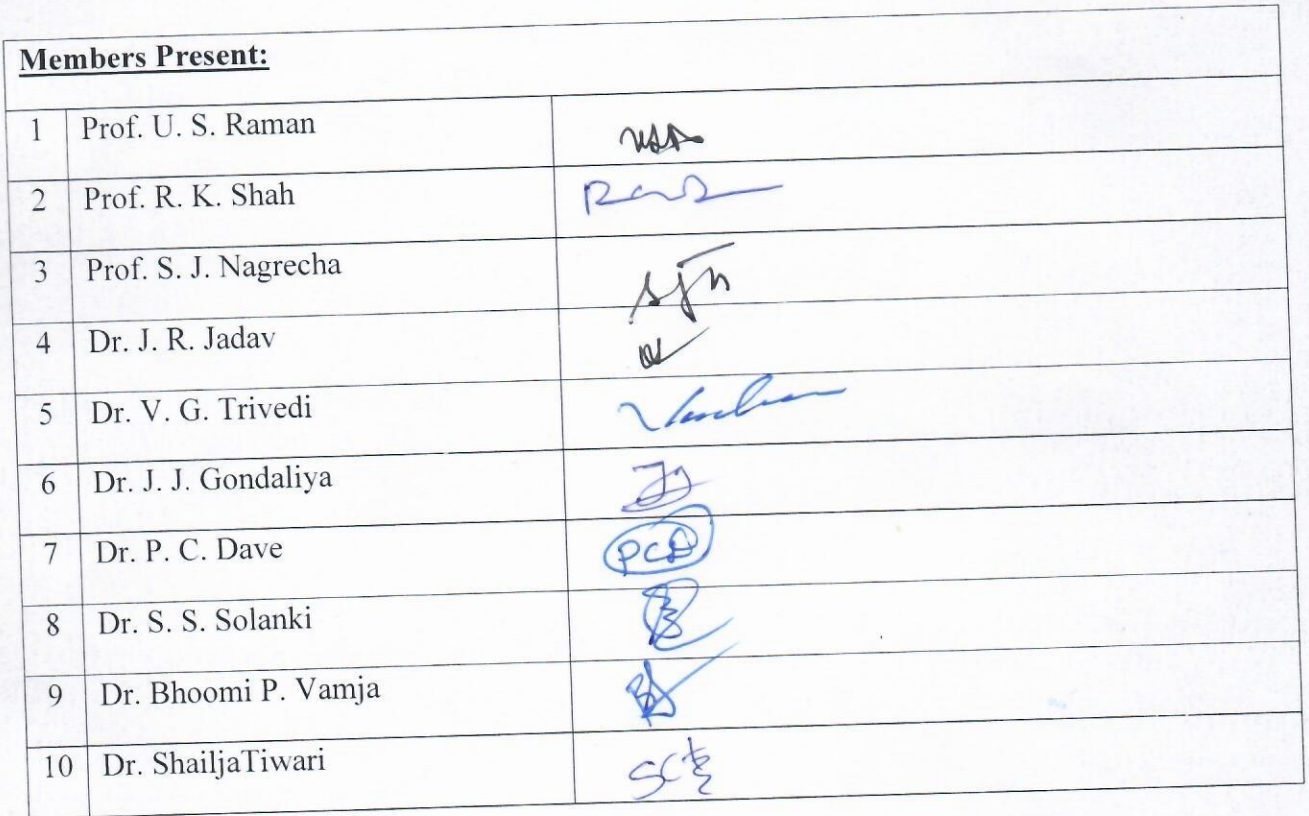 Members Present:
1 Prof. U. S. Raman
2 Prof. R. K. Shah
3 Prof. S. J. Nagrecha sjn
4 Dr. J. R. Jadav
5 Dr. V. G. Trivedi
6 Dr. J. J. Gondaliya
7 Dr. P. C. Dave PCD
8 Dr. S. S. Solanki
9 Dr. Bhoomi P. Vamja
10 Dr. ShailjaTiwari